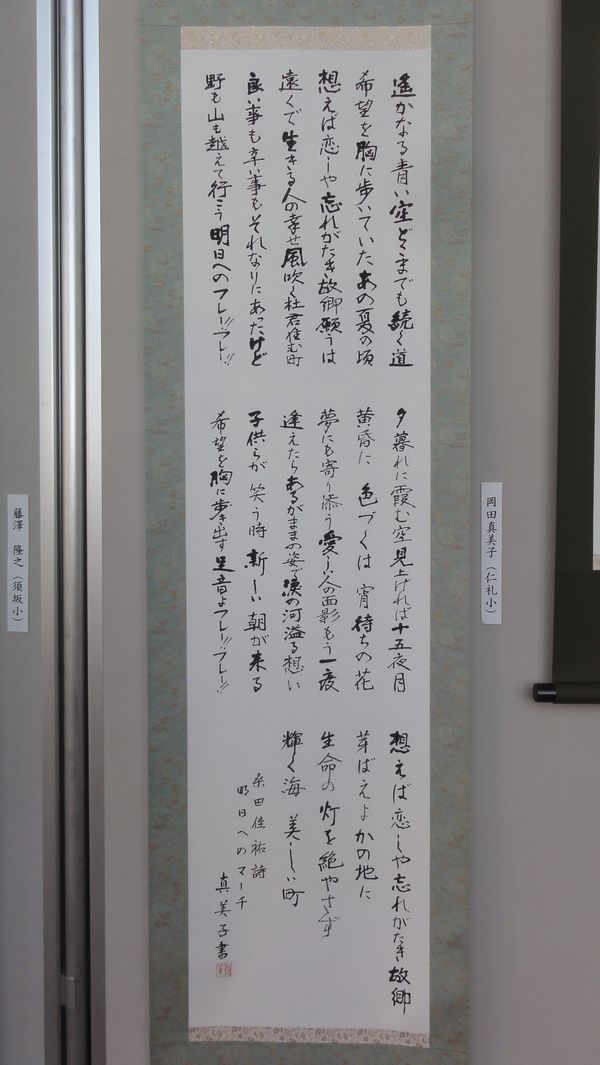 遥かなる青い空どこまでも続く道
希望を胸に歩いていたあの夏の頃
想えば恋しや忘れがたき故郷願うは
遠くで生きる人の幸せ風吹く杜君住む町
良い事も辛い事もそれなりにあったけど
野も山も越えて行こう明日へのフレー!!フレー!!
夕暮れに霞む空見上げれば十五夜月
黄昏に 色づくは 宵待ちの花
夢にも寄り添う愛しい人の面影もう一度
逢えたらあるがままの姿で涙の河溢る想い
子供らが 笑う時 新しい 朝が来る
希望を胸に歩き出す足音よフレー!!フレー!!
想えば恋しや忘れがたき故郷
芽ばえよかの地に
生命の灯を絶やさず
輝く海 美しい町
桑田佳祐詩
明日へのマーチ
真美子書
岡田真美子(仁礼小)
藤澤 隆之(須坂小)